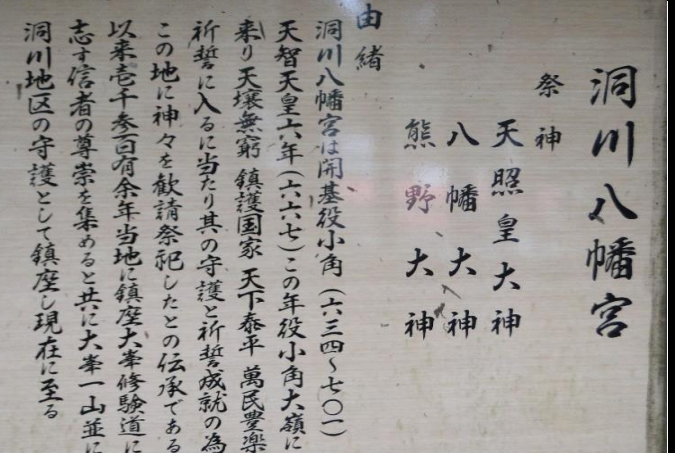 洞川八幡宮
祭神
天照皇大神
八幡大神
熊野大神
由緒
洞川八幡宮は開基役小角（六三四～七〇一）
天智天皇六年（六六七）この年役小角大嶺に
来り天壌無窮 鎮護国家 天下泰平 萬民豊楽
祈誓に入るに当たり其の守護と祈誓成就の為
この地に神々を歓請祭祀したとの伝承である
以来壱千参百有余年当地に鎮座大峯修験道に
志す信者の尊崇を集めると共に大峯一山並に
洞川地区の守護として鎮座し現在に至る